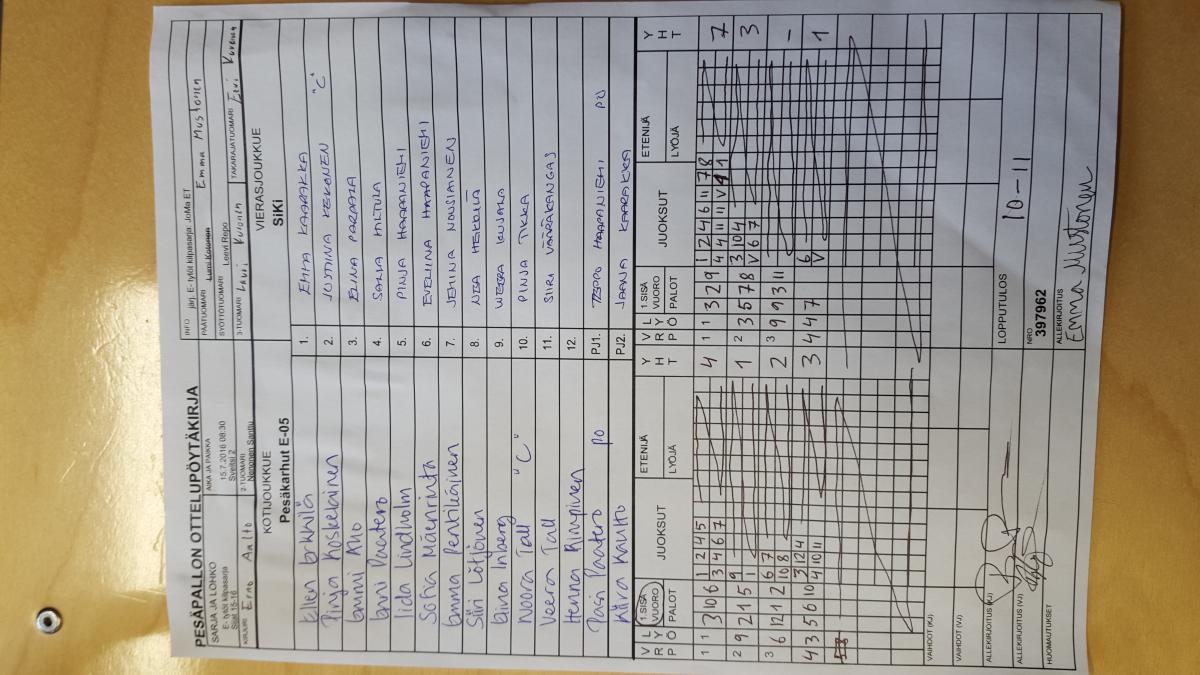 PESÄPALLON OTTELUPÖYTÄKIRJA
SARJA JA LOHKO
E- tytöt kilpasarja
Sijat 15-16
AIKA JA PAIKKA
15.7.2016 08:30
Sveitsi 2
INFO järj. E- tytöt kilpasarja: JoMa ET
PÄÄTUOMARI Lumi Kolonen Emma Mustonen
SYÖTTÖTUOMARI Leevi Repo
KIRJURI Erno Aalto
2-TUOMARI Nenonen Santtu
3-TUOMARI Lauri Vuronen
TAKARAJATUOMARI Eevi
KOTIJOUKKUE
Pesäkarhut E-05
VIERASJOUKKUE
SiKi
Ellen Erkkilä 1. EMMA KAARAKKA
Pinja Koskelainen 2. JUSTIINA KEKONEN "C"
Emmi Aho 3. ELINA
Anni Paatero 4. SALLA HILTULA
Iida Lindholm 5. PINJA HAAPANIEMI
Sofia Mäenrinta 6. EVELIINA HAAPANIEMI
Emma Penttiläinen 7. JEMINA NOUSIAINEN
Siiri Lötjönen 8. NEA HEKKILÄ
Eina Inberg 9. VEERA
Noora Tall "C" 10. PINJA TIKKA
Veera Tall 11. SIIRI VÄÄRÄKANGAS
Henna Rimpinen 12.
Pasi Paatero PO PJ1. TEPPO HAAPANIEMI PO
Kiira Kautto PJ2. JAANA KAARAKKA
V R P L Y Ö 1.SISÄ VUORO PALOT JUOKSUT ETENIJÄ LYÖJÄ Y H T V R P L Y Ö 1.SISÄ VUORO PALOT JUOKSUT ETENIJÄ LYÖJÄ Y H T
1 1 3 10 6 1 2 4 5 4 1 1 3 2 9 1 2 4 6 11 7 8 7
3 4 6 7 4 4 11 11 V 9 1
2 9 2 1 5 9 1 2 3 5 7 8 3 10 4 3
1 V 6 7
3 6 12 1 2 6 7 2 3 9 9 3 11 -
10 8
4 3 5 6 10 3 12 4 3 4 4 7 6 1
4 10 11 V
VAIHDOT (KJ)
VAIHDOT (VJ)
LOPPUTULOS 10-11
ALLEKIRJOITUS (KJ)
ALLEKIRJOITUS (VJ)
NRO
397962
HUOMAUTUKSET
ALLEKIRJOITUS
Emma Mustonen